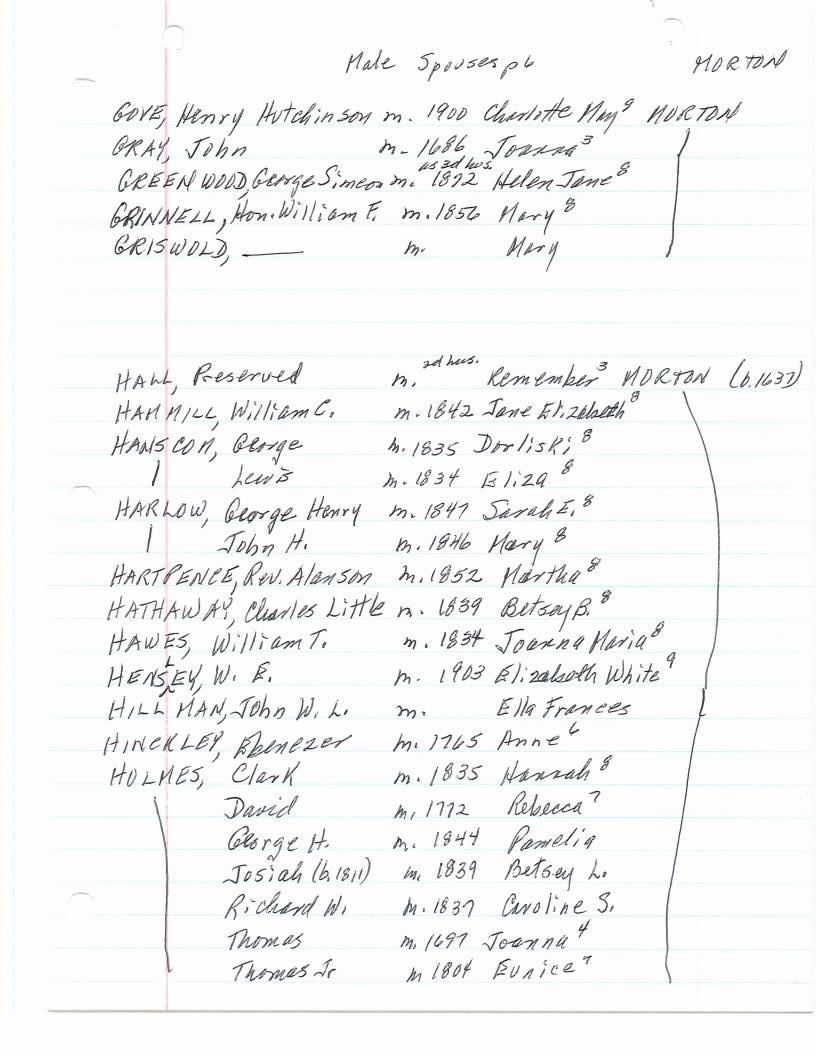 Male Spouses p6 MORTON
GOVE, Henry Hutchinson m. 1900 Charlotte May⁸ MORTON
GRAY, John m. 1686 Joanna³
as 2d hus.
GREENWOOD, George Simeon m. 1872 Helen Jane⁸
GRINNELL, Hon. William F. m. 1856 Mary⁸
GRISWOLD, —— m. Mary
2d hus.
HALL, Preserved m. Remember³ MORTON (b.1637)
HAMMILL, William C. m. 1842 Jane Elizabeth⁸
HANSCOM, George m. 1835 Dorliski⁸
Lewis m. 1834 Eliza⁸
HARLOW, George Henry m. 1847 Sarah E.⁸
John H. m. 1846 Mary⁸
HARTPENCE, Rev. Alanson m. 1852 Martha⁸
HATHAWAY, Charles Little m. 1839 Betsey B.⁸
HAWES, William T. m. 1834 Joanna Maria⁸
HENSLEY, W. E. m. 1903 Elizabeth White⁹
HILLMAN, John W. L. m. Ella Frances
HINCKLEY, Ebenezer m. 1765 Anne⁶
HOLMES, Clark m. 1835 Hannah⁸
David m. 1772 Rebecca⁷
George H. m. 1844 Pamelia
Josiah (b.1811) m. 1839 Betsey L.
Richard W. m. 1837 Caroline S.
Thomas m. 1697 Joanna⁴
Thomas Jr m 1804 Eunice⁷